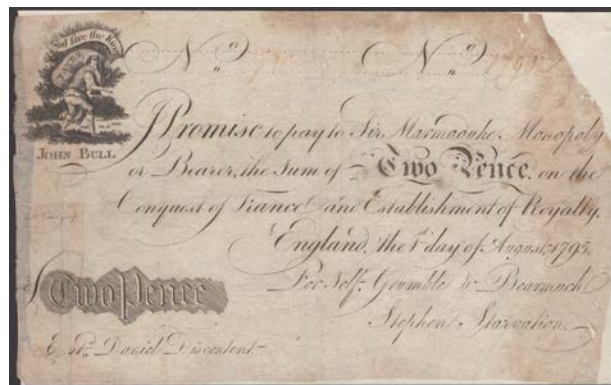 God save the King
TAXES
JOHN BULL
No No 1795
I Promise to pay to Sir Marmaduke Monopoly
or Bearer, the Sum of Two Pence, on the
Conquest of France and Establishment of Royalty.
England, the 1st day of August, 1795.
For Self, Grumble & Bearmuch
Two Pence
Stephen Starvation
Entd. Daniel Discontent